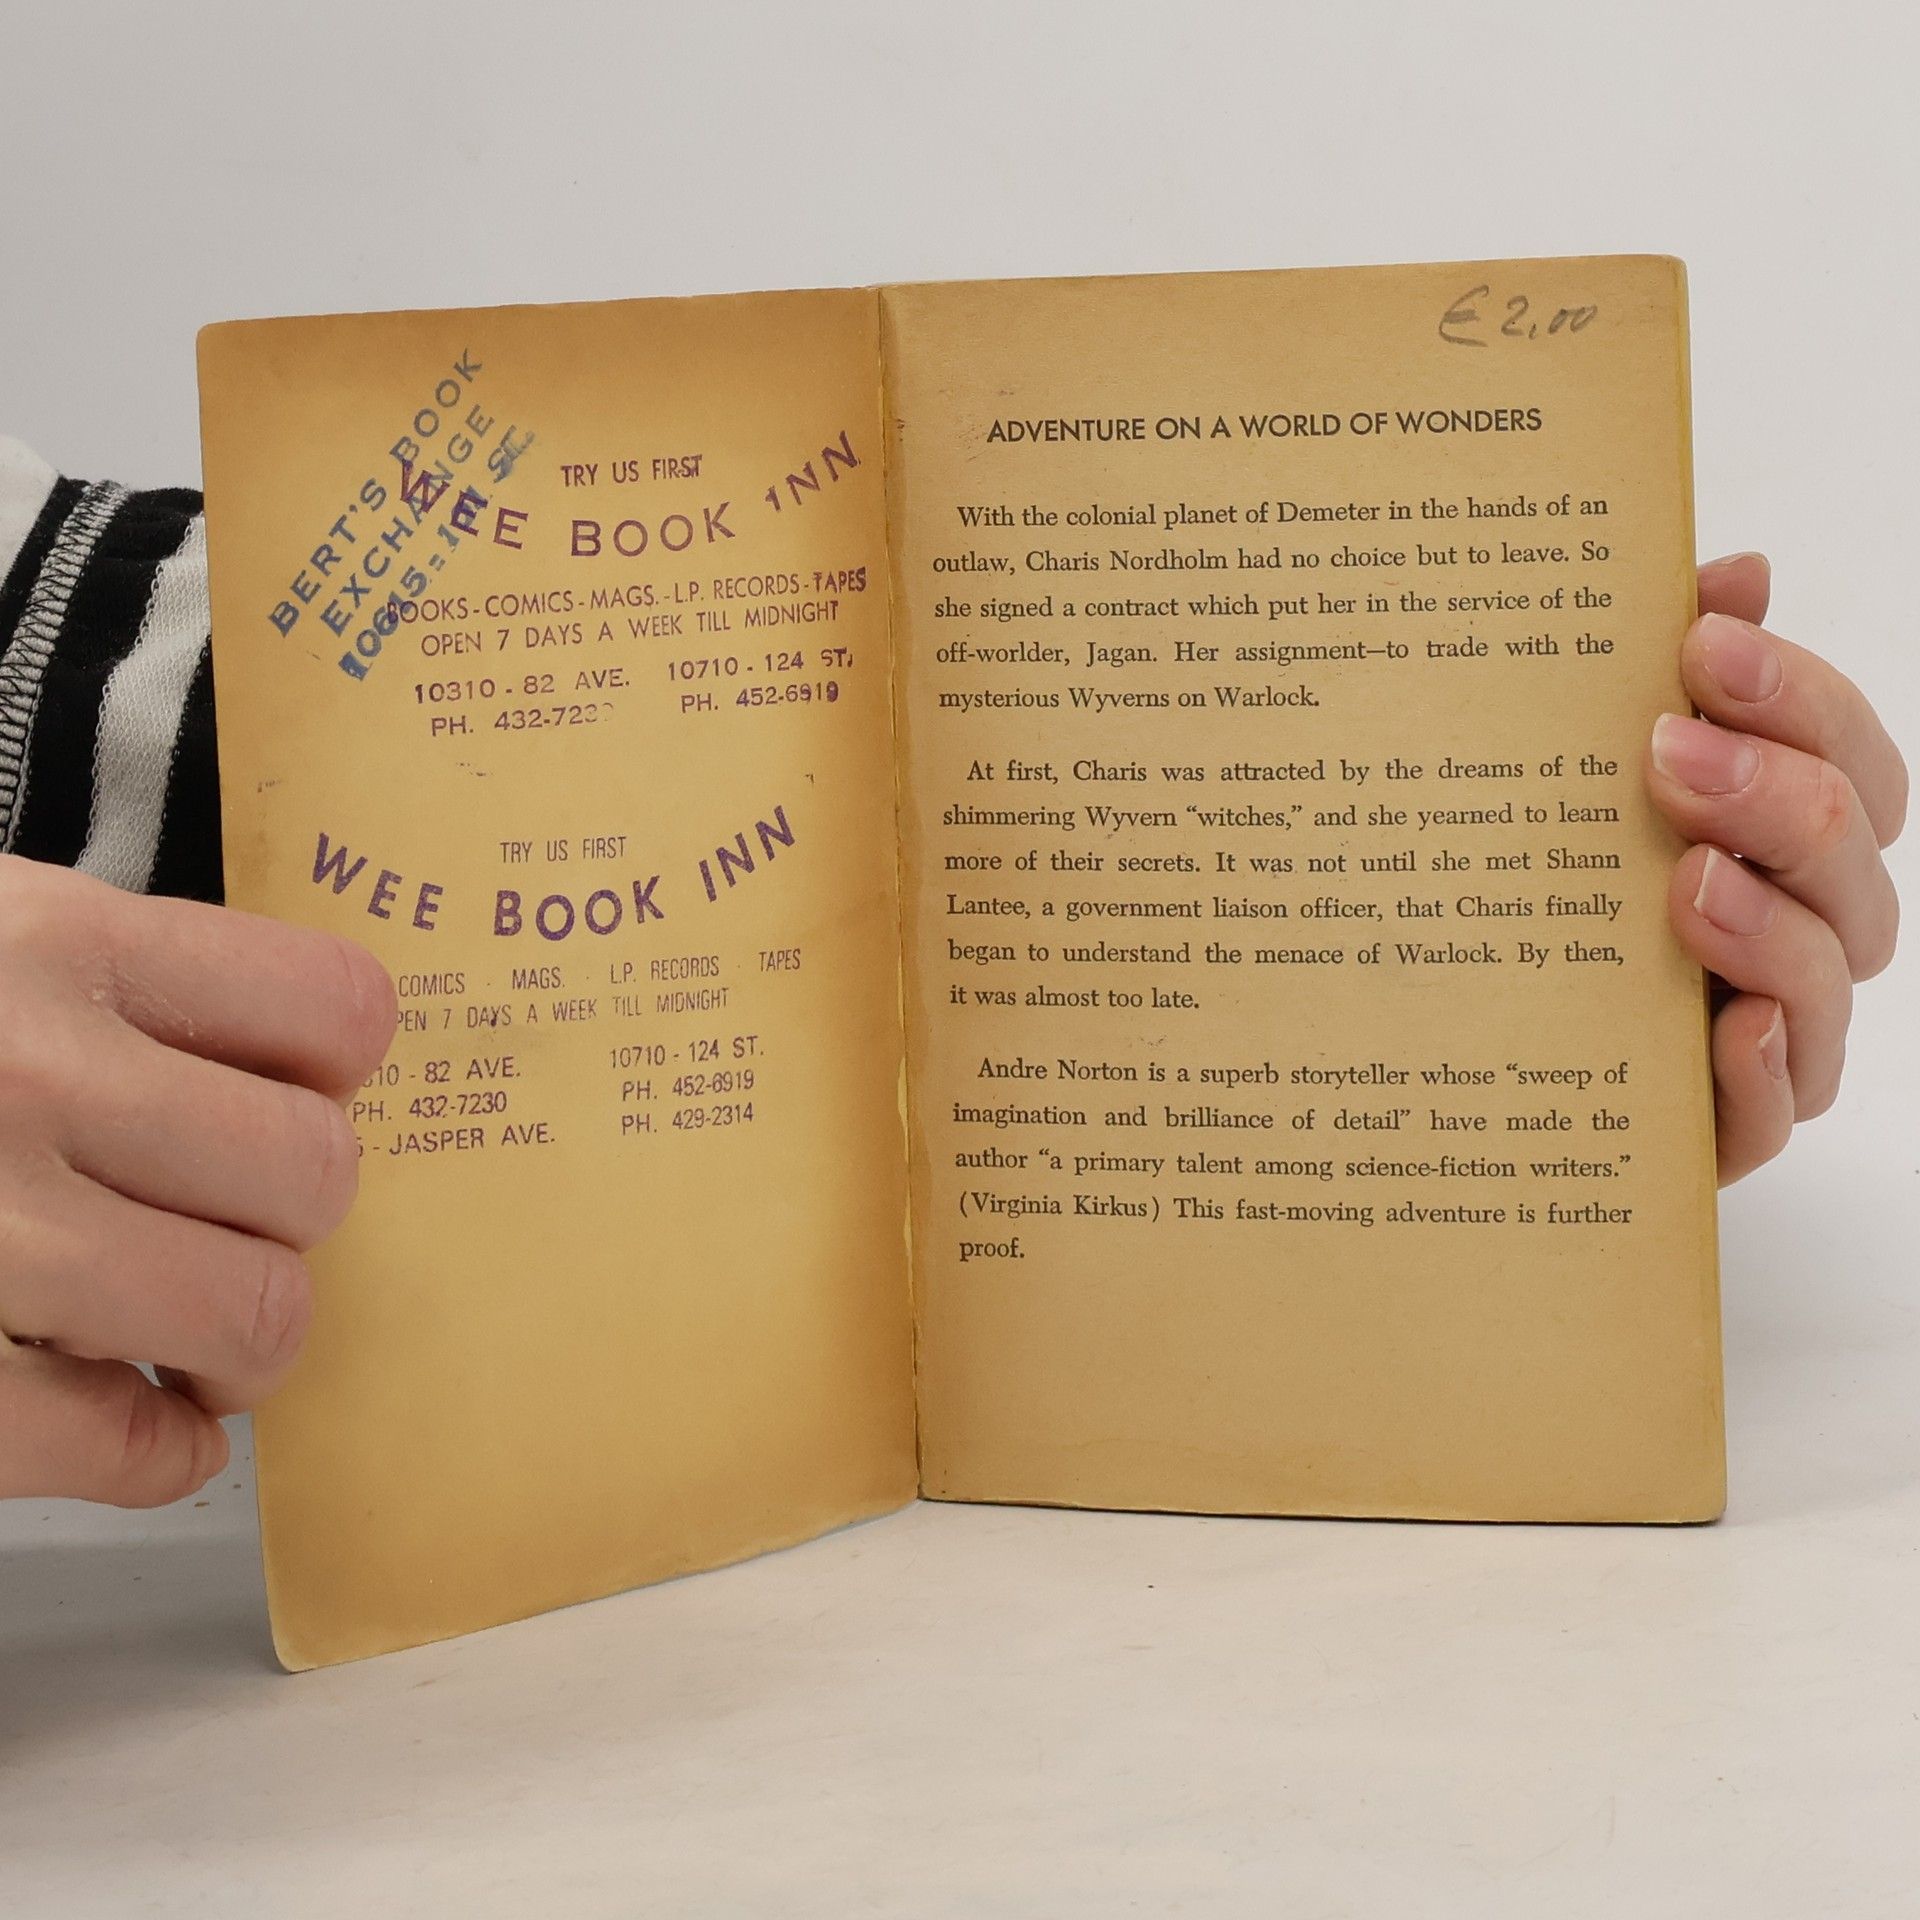 BERT'S BOOK
EXCHANGE
TRY US FIRST
WEE BOOK INN
BOOKS - COMICS - MAGS. - L.P. RECORDS - TAPES
OPEN 7 DAYS A WEEK TILL MIDNIGHT
10310 - 82 AVE. 10710 - 124 ST.
PH. 432-723 PH. 452-6919
TRY US FIRST
WEE BOOK INN
COMICS - MAGS. - L.P. RECORDS - TAPES
PEN 7 DAYS A WEEK TILL MIDNIGHT
310 - 82 AVE. 10710 - 124 ST.
PH. 432-7230 PH. 452-6919
5 - JASPER AVE. PH. 429-2314
€ 2,00
ADVENTURE ON A WORLD OF WONDERS
With the colonial planet of Demeter in the hands of an
outlaw, Charis Nordholm had no choice but to leave. So
she signed a contract which put her in the service of the
off-worlder, Jagan. Her assignment—to trade with the
mysterious Wyverns on Warlock.
At first, Charis was attracted by the dreams of the
shimmering Wyvern “witches,” and she yearned to learn
more of their secrets. It was not until she met Shann
Lantee, a government liaison officer, that Charis finally
began to understand the menace of Warlock. By then,
it was almost too late.
Andre Norton is a superb storyteller whose “sweep of
imagination and brilliance of detail” have made the
author “a primary talent among science-fiction writers.”
(Virginia Kirkus) This fast-moving adventure is further
proof.